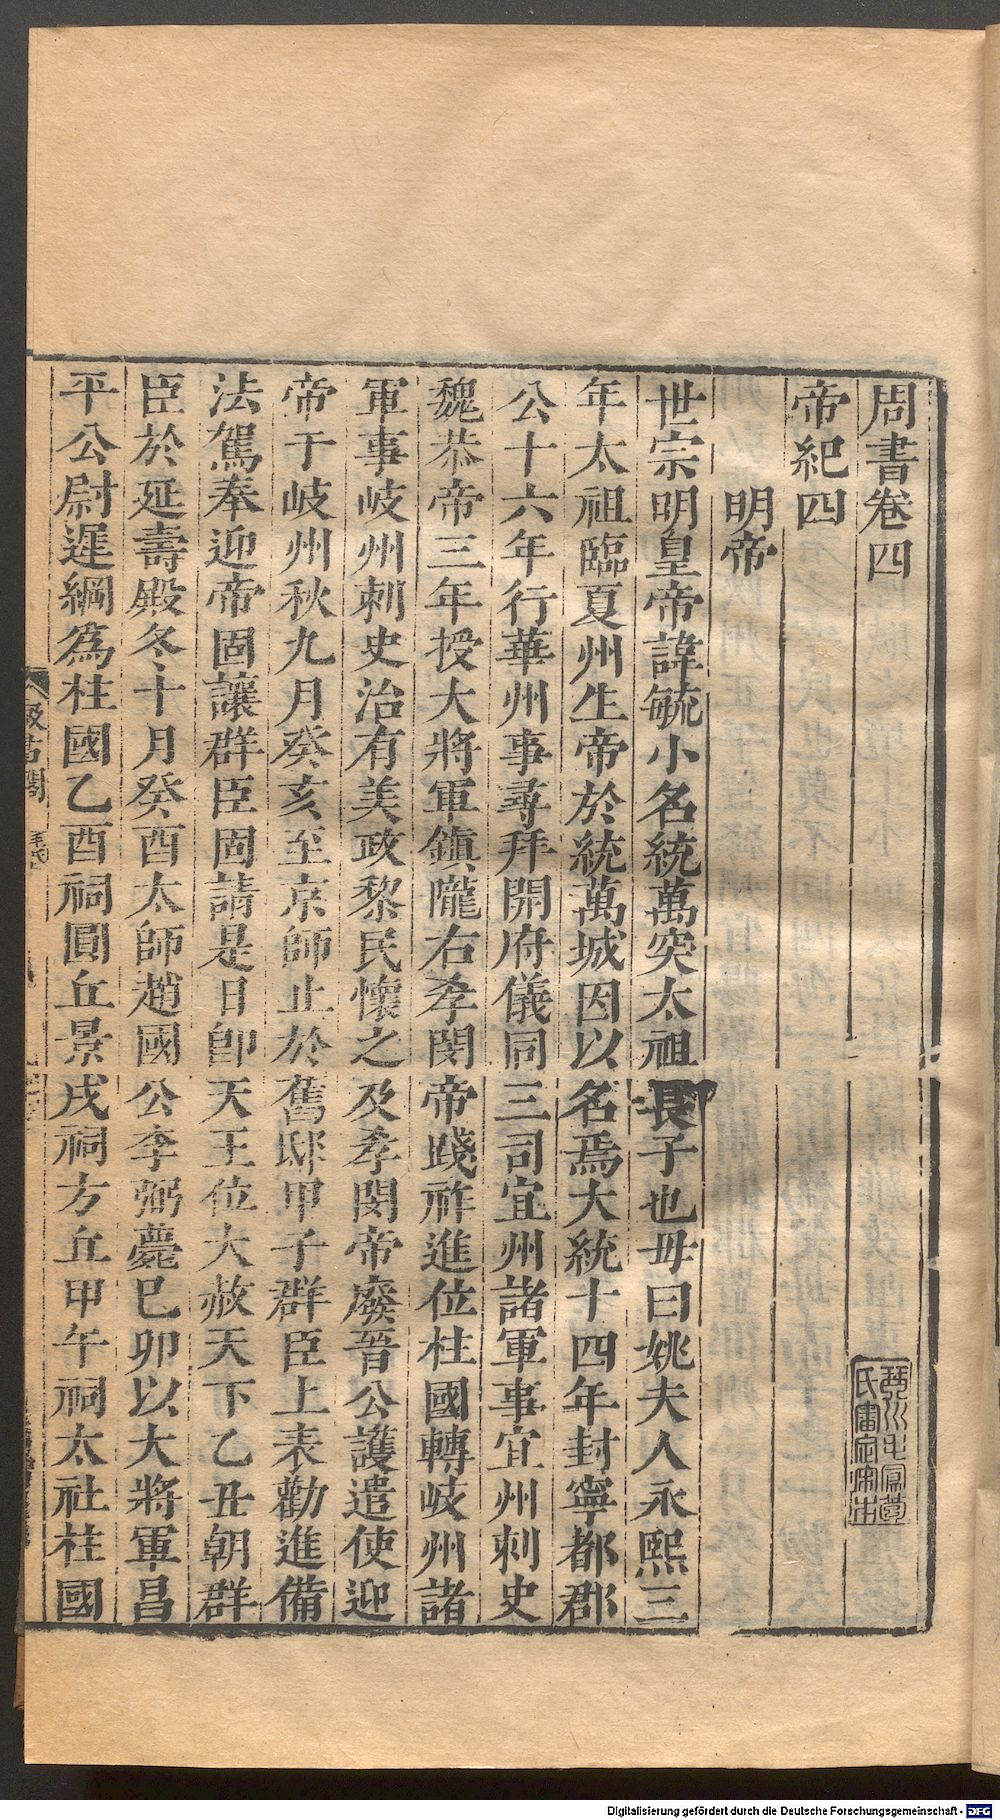 周書卷四
帝紀四
明帝
世宗明皇帝諱毓小名統萬突太祖長子也母曰姚夫人永熙三
年太祖臨夏州生帝於統萬城因以名焉大統十四年封寧都郡
公十六年行華州事尋拜開府儀同三司宜州諸軍事宜州刺史
魏恭帝三年授大將軍鎮隴右孝閔帝踐祚進位柱國轉岐州諸
軍事岐州刺史治有美政黎民懷之及孝閔帝廢晉公護遣使迎
帝于岐州秋九月癸亥至京師止於舊邸甲子群臣上表勸進備
法駕奉迎帝固讓群臣固請是日即天王位大赦天下乙丑朝群
臣於延壽殿冬十月癸酉太師趙國公李弼薨己卯以大將軍昌
平公尉遲綱為柱國乙酉祠圓丘景戌祠方丘甲午祠太社柱國
汲古閣
毛氏
Digitalisierung gefördert durch die Deutsche Forschungsgemeinschaft - DFG